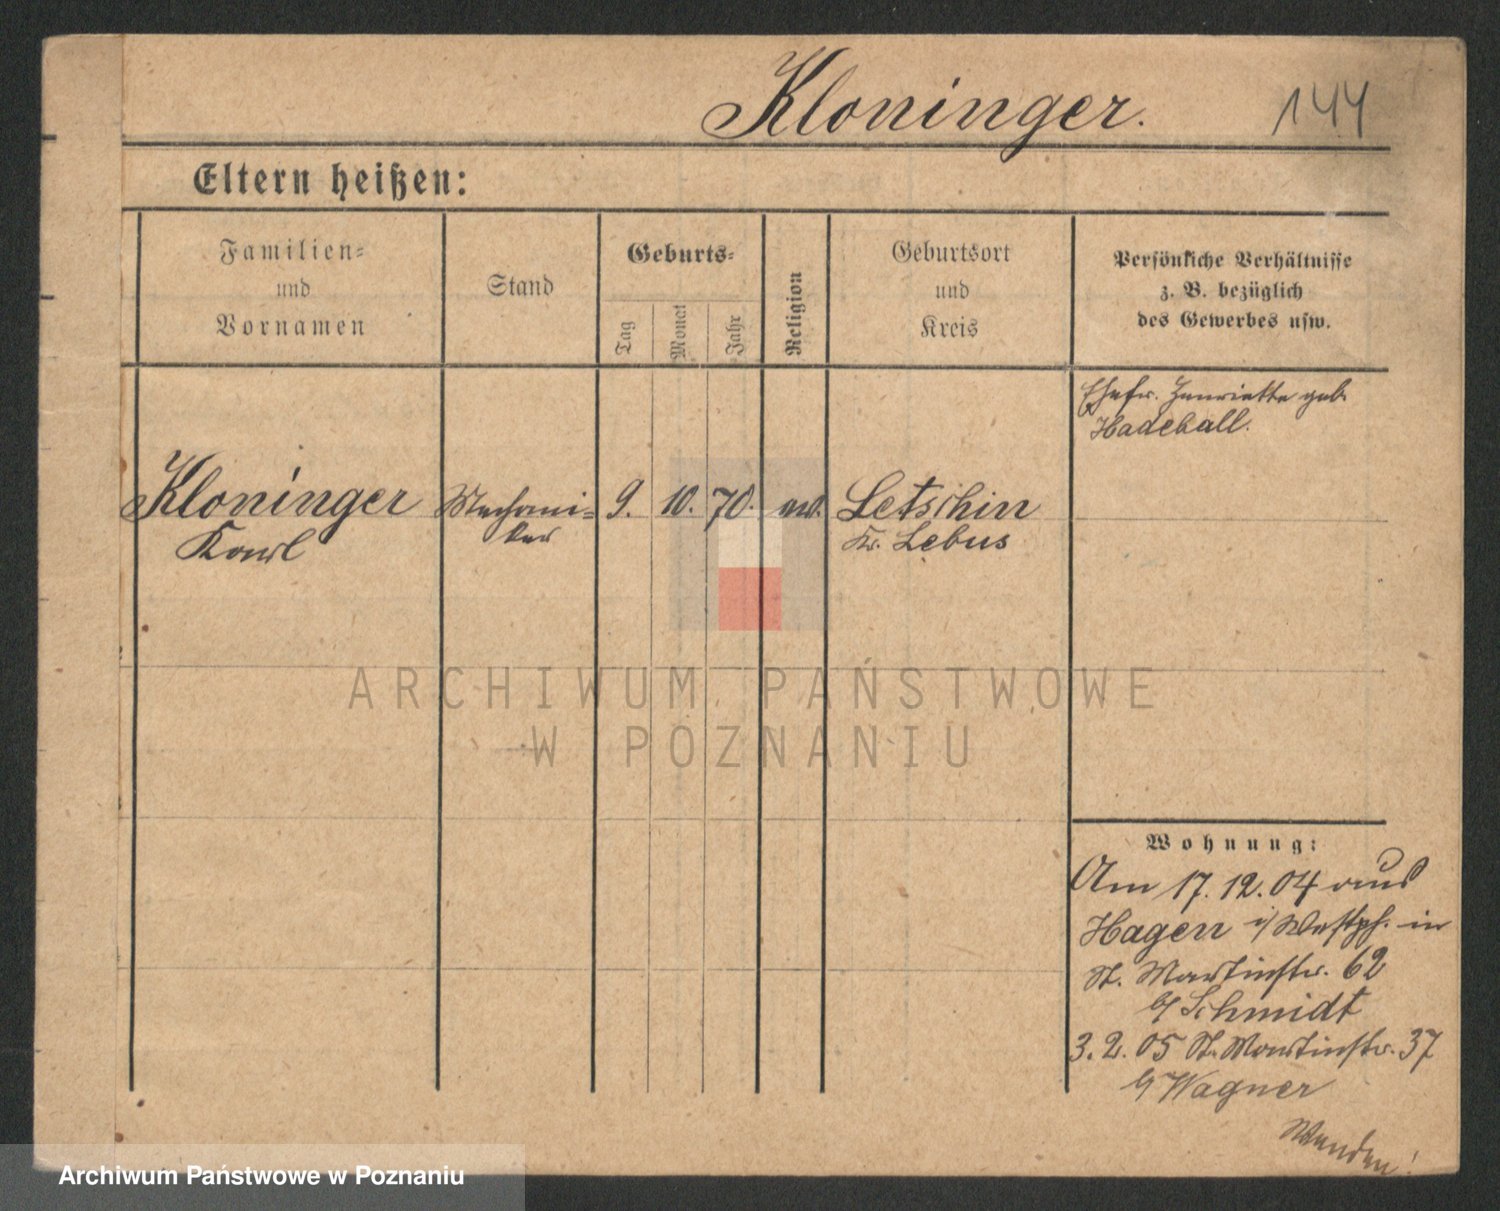 Kloninger.
144
Eltern heißen:
Familien-
und
Vornamen
Stand
Geburts-
Tag
Monat
Jahr
Religion
Geburtsort
und
Kreis
Persönliche Verhältnisse
z. B. bezüglich
des Gewerbes usw.
Ehefr. Henriette geb.
Hadeball.
Kloninger Mechani- 9. 10. 70. ev. Letschin
Karl ker Kr. Lebus
ARCHIWUM PAŃSTWOWE
W POZNANIU
Wohnung:
Am 17.12.04 aus
Hagen i/Westph. in
St. Martinstr. 62
b/ Schmidt
3.2.05 St. Martinstr. 37
b/ Wagner
Wenden!
Archiwum Państwowe w Poznaniu